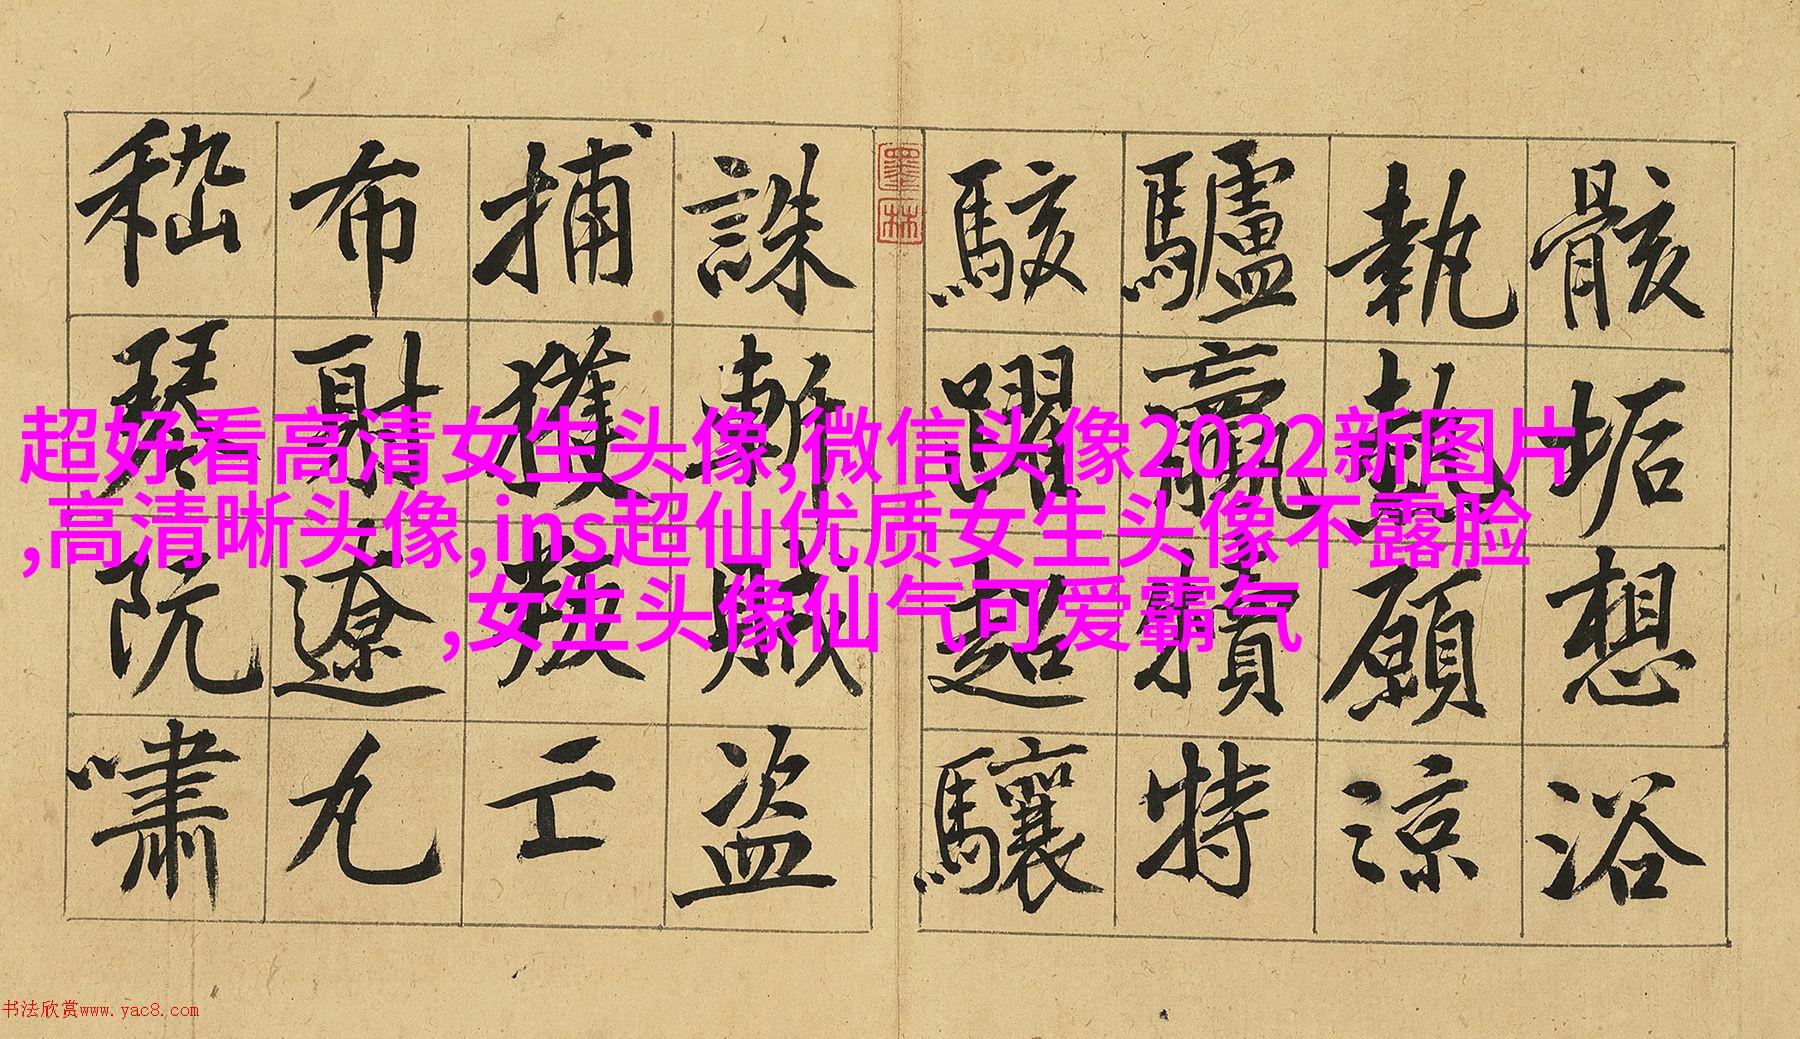 骸垢想浴
執熱願涼
驢驘犢特
駭躍超驤
墨林
誅斬賊盜
捕獲叛亡
布射遼丸
嵇琴阮嘯
超好看高清女生头像,微信头像2022新图片
,高清晰头像,ins超仙优质女生头像不露脸
,女生头像仙气可爱霸气
书法欣赏www.yac8.com